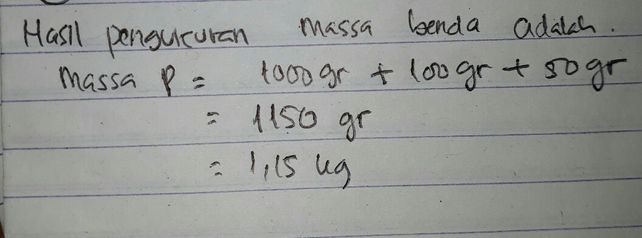 Hasil pengukuran massa benda adalah.
Massa P = 1000 gr + 100 gr + 50 gr
= 1150 gr
= 1,15 kg